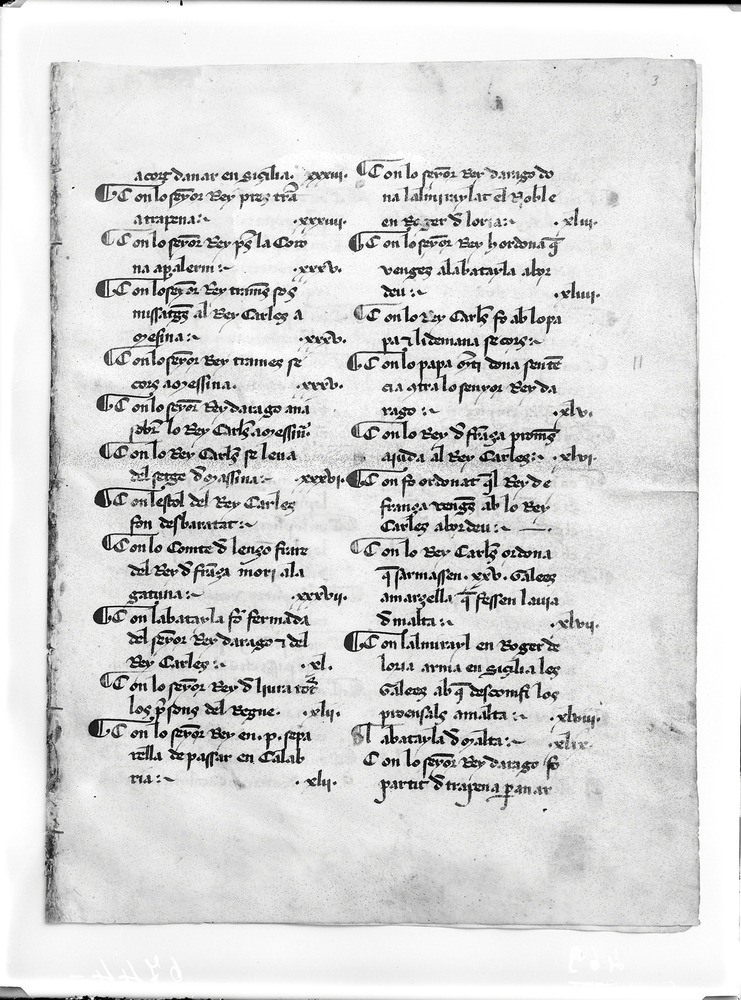 3
acort danar en Sicilia. .xxxiii.
Con lo seyor Rey pres tra
a trapena .xxxiiii.
Con lo seyor Rey ps la Coro
na a palerm .xxxv.
Con lo seyor Rey trames sos
missatgs al Rey Carles a
mesina .xxxv.
Con lo seyor Rey trames se
cors a messina. .xxxv.
Con lo seyor Rey darago ana
lo Rey Carls a messia.
Con lo Rey Carls se leua
del setge d messina .xxxvi.
Con lestol del Rey Carles
fon desbaratat
Con lo Comte d lenso frare
del Rey d frāsa mori a la
gatuna .xxxvii.
Con la batayla fo fermada
del seyor Rey darago ⁊ del
Rey Carles .xl.
Con lo seyor Rey d liura tots
los psons del Regne. .xlii.
Con lo seyor Rey en .p. sepa
rella de passar en Calab
ria .xlii.
Con lo seyor Rey darago do
na lalmiraylat el Noble
en Roger d loria .xliii.
Con lo seyor Rey hordona q̄
vengues a la batayla a bor
deu .xliiii.
Con lo Rey Carls fo ab lo pa
pa ⁊ li demana secors
Con lo papa mti dona sentē
cia contra lo senyor Rey da
rago .xlv.
Con lo Rey d frāsa promes
ajuda al Rey Carles .xlvi.
Con fo ordonat ql Rey de
fransa vengs ab lo Rey
Carles a bordeu
Con lo Rey Carls ordona
q̄ sarmassen .xxv. Galees
a marzella q̄ fessen la uia
d malta .xlvii.
Con lalmirayl en Roger de
loria arma en Sicilia les
Galees ab q̄ desconfi los
proensals a malta .xlviii.
la batayla d malta .xlix.
Con lo seyor Rey darago fo
partit d trapena p anar